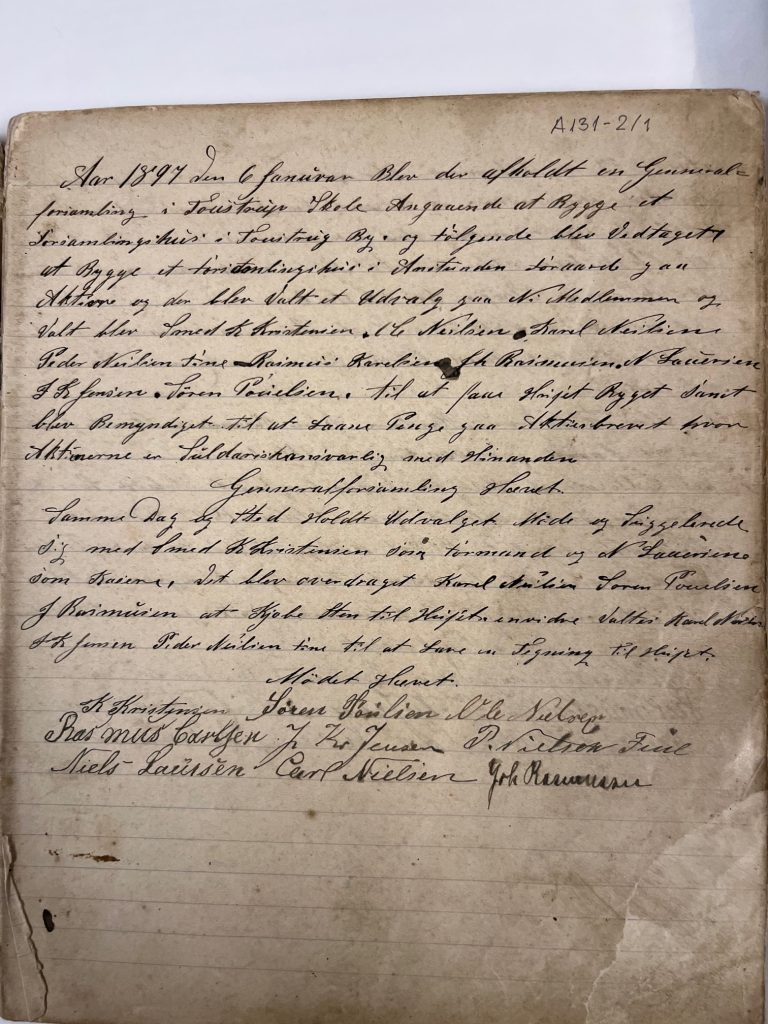 A131-2/1
Aar 1897 den 6 Januar Blev der afholdt en Genneral=
forsamling i Foustrup Skole Angaaende at Bygge et
Forsamlingshus i Foustrup By. og følgende blev Vedtaget
at Bygge et forsamlingshus i Anstanden foraard paa
Aktier og der blev Valt et Udvalg paa Ni Medlemmer og
Valt blev Smed K Kristensen. Ole Neilsen. Karel Neilsen
Peder Neilsen fine Rasmus Karelsen Jh Rasmusen. N Lauersen
J K Jensen. Søren Pouelsen. til at faa Huset Bygget samt
blev Bemyndiget til at Laane Penge paa Aktiesbrevet hvor
Aktinerne er Suldariskansvarlig med Hinanden
Genneralforsamling Hævet.
Samme Dag og Sted Holdt Udvalget Møde og
sig med Smed K Kristensen som formand og N Lauersen
som Kaserer. Det blev overdraget Karel Neilsen Søren Pouelsen
J Rasmusen at Kjøbe Sten til Huset envidre Valtes Karel Neilsen
J K Jensen Peder Neilsen fine til at Lave en Tegning til Huset.
Mødet Hævet.
K Kristensen Søren Poulsen Ole Nielsen
Rasmus Carlsen J Kr Jensen P. Nielsen Fine
Niels Laursen Carl Nielsen Joh Rasmussen